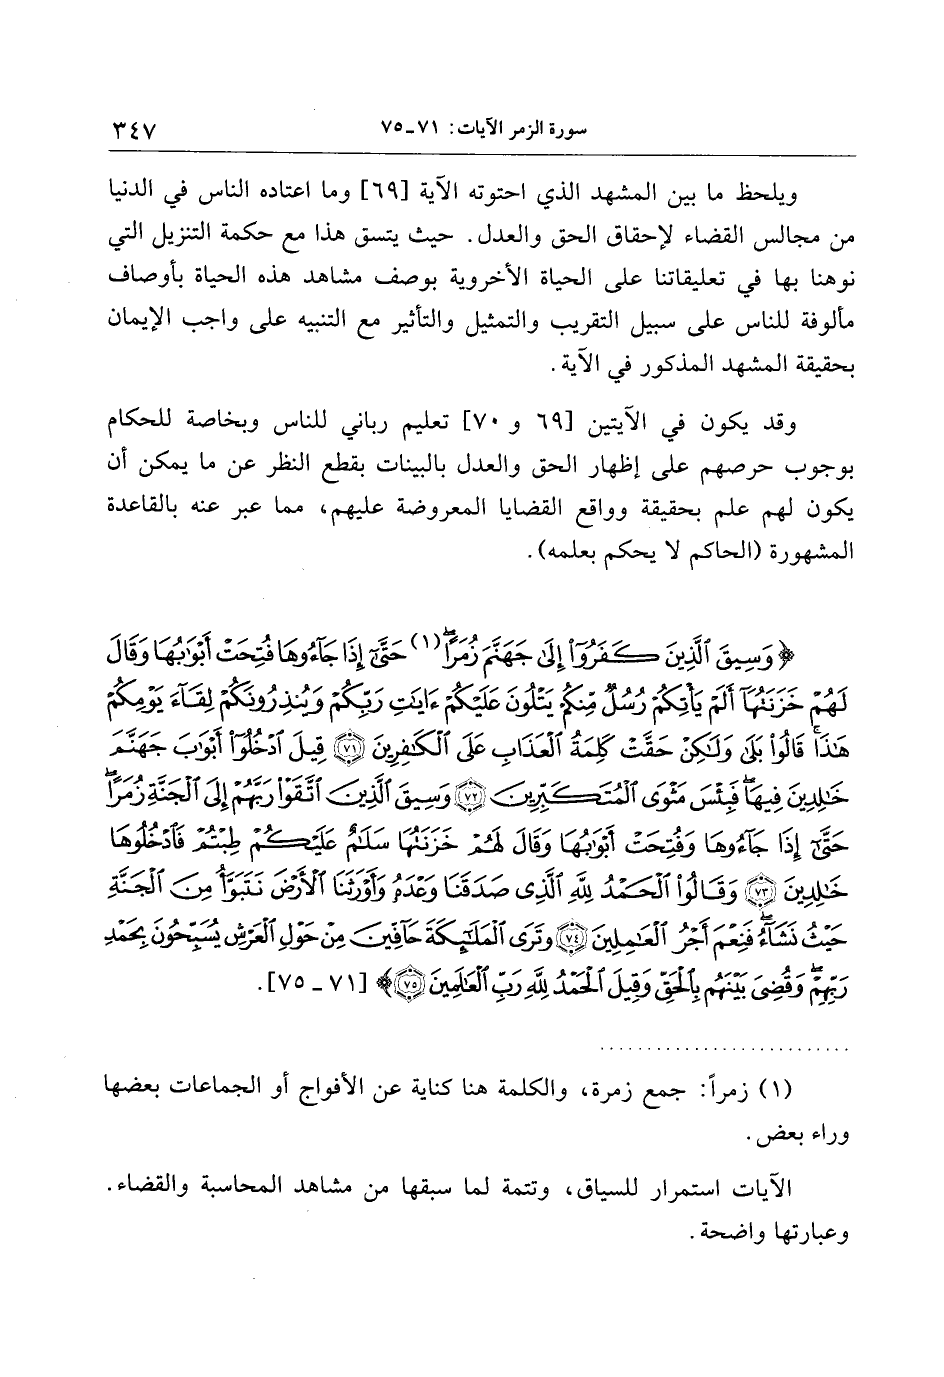 سورة الزمر الآيات: ٧١-٧٥ ٣٤٧
ويلحظ ما بين المشهد الذي احتوته الآية [٦٩] وما اعتاده الناس في الدنيا
من مجالس القضاء لإحقاق الحق والعدل. حيث يتسق هذا مع حكمة التنزيل التي
نوهنا بها في تعليقاتنا على الحياة الأخروية بوصف مشاهد هذه الحياة بأوصاف
مألوفة للناس على سبيل التقريب والتمثيل والتأثير مع التنبيه على واجب الإيمان
بحقيقة المشهد المذكور في الآية.
وقد يكون في الآيتين [٦٩ و ٧٠] تعليم رباني للناس وبخاصة للحكام
بوجوب حرصهم على إظهار الحق والعدل بالبينات بقطع النظر عن ما يمكن أن
يكون لهم علم بحقيقة وواقع القضايا المعروضة عليهم، مما عبر عنه بالقاعدة
المشهورة (الحاكم لا يحكم بعلمه).
﴿ وَسِيقَ ٱلَّذِينَ كَفَرُوٓا۟ إِلَىٰ جَهَنَّمَ زُمَرًا ۖ (١) حَتَّىٰٓ إِذَا جَآءُوهَا فُتِحَتْ أَبْوَٰبُهَا وَقَالَ
لَهُمْ خَزَنَتُهَآ أَلَمْ يَأْتِكُمْ رُسُلٌ مِّنكُمْ يَتْلُونَ عَلَيْكُمْ ءَايَٰتِ رَبِّكُمْ وَيُنذِرُونَكُمْ لِقَآءَ يَوْمِكُمْ
هَٰذَا ۚ قَالُوا۟ بَلَىٰ وَلَٰكِنْ حَقَّتْ كَلِمَةُ ٱلْعَذَابِ عَلَى ٱلْكَٰفِرِينَ ﴿٧١﴾ قِيلَ ٱدْخُلُوٓا۟ أَبْوَٰبَ جَهَنَّمَ
خَٰلِدِينَ فِيهَا ۖ فَبِئْسَ مَثْوَى ٱلْمُتَكَبِّرِينَ ﴿٧٢﴾ وَسِيقَ ٱلَّذِينَ ٱتَّقَوْا۟ رَبَّهُمْ إِلَى ٱلْجَنَّةِ زُمَرًا ۖ
حَتَّىٰٓ إِذَا جَآءُوهَا وَفُتِحَتْ أَبْوَٰبُهَا وَقَالَ لَهُمْ خَزَنَتُهَا سَلَٰمٌ عَلَيْكُمْ طِبْتُمْ فَٱدْخُلُوهَا
خَٰلِدِينَ ﴿٧٣﴾ وَقَالُوا۟ ٱلْحَمْدُ لِلَّهِ ٱلَّذِى صَدَقَنَا وَعْدَهُۥ وَأَوْرَثَنَا ٱلْأَرْضَ نَتَبَوَّأُ مِنَ ٱلْجَنَّةِ
حَيْثُ نَشَآءُ ۖ فَنِعْمَ أَجْرُ ٱلْعَٰمِلِينَ ﴿٧٤﴾ وَتَرَى ٱلْمَلَٰٓئِكَةَ حَآفِّينَ مِنْ حَوْلِ ٱلْعَرْشِ يُسَبِّحُونَ بِحَمْدِ
رَبِّهِمْ ۖ وَقُضِىَ بَيْنَهُم بِٱلْحَقِّ وَقِيلَ ٱلْحَمْدُ لِلَّهِ رَبِّ ٱلْعَٰلَمِينَ ﴿٧٥﴾ ﴾ [٧١ - ٧٥].
(١) زمراً: جمع زمرة، والكلمة هنا كناية عن الأفواج أو الجماعات بعضها
وراء بعض.
الآيات استمرار للسياق، وتتمة لما سبقها من مشاهد المحاسبة والقضاء.
وعبارتها واضحة.